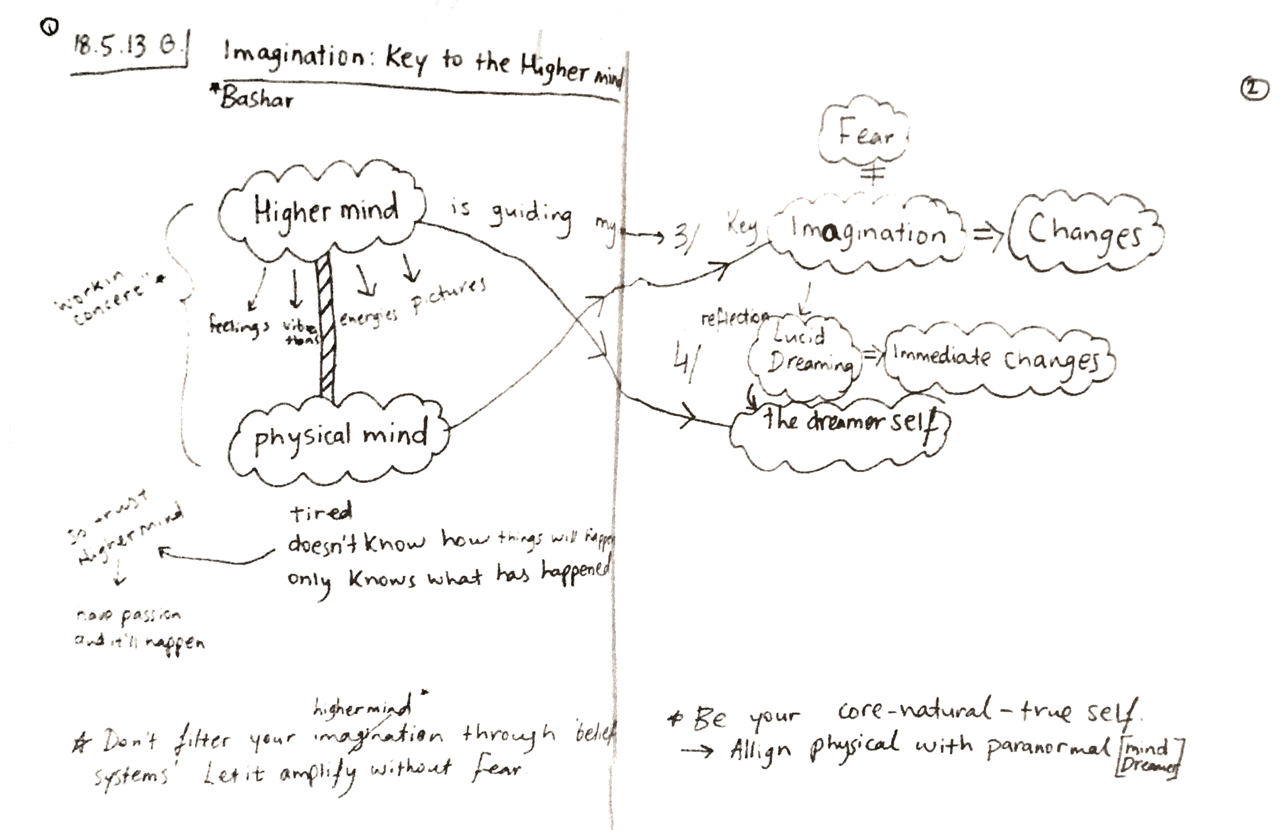 1
18.5.13 B.
Imagination: Key to the Higher mind
*Bashar
Higher mind
is guiding my
feelings
vibrations
energies
pictures
"work in
concert" *
physical mind
tired
doesn't know how things will happen
only knows what has happened
so trust
Higher mind
have passion
and it'll happen
higher mind *
* Don't filter your imagination through 'belief
systems' Let it amplify without fear
2
Fear
≠
3/ Key Imagination ⇒ Changes
reflection
4/
Lucid
Dreaming
⇒ Immediate changes
the dreamer self
* Be your core-natural-true self.
→ Allign physical with paranormal [mind
Dreamer]